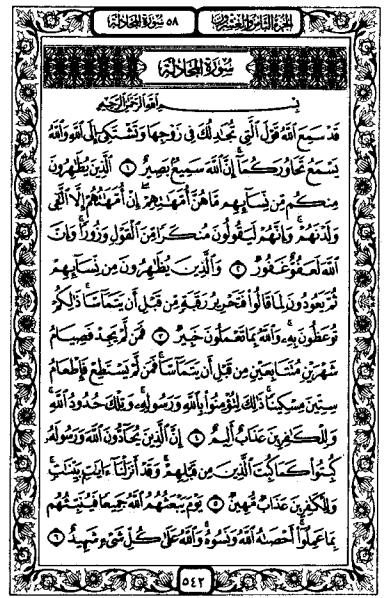 الجزء الثامن والعشرون
٥٨ سورة المجادلة
سورة المجادلة
بسم الله الرحمن الرحيم
قَدْ سَمِعَ اللَّهُ قَوْلَ الَّتِي تُجَادِلُكَ فِي زَوْجِهَا وَتَشْتَكِي إِلَى اللَّهِ وَاللَّهُ
يَسْمَعُ تَحَاوُرَكُمَا إِنَّ اللَّهَ سَمِيعٌ بَصِيرٌ ١ الَّذِينَ يُظَاهِرُونَ
مِنكُم مِّن نِّسَائِهِم مَّا هُنَّ أُمَّهَاتِهِمْ إِنْ أُمَّهَاتُهُمْ إِلَّا اللَّائِي
وَلَدْنَهُمْ وَإِنَّهُمْ لَيَقُولُونَ مُنكَرًا مِّنَ الْقَوْلِ وَزُورًا وَإِنَّ
اللَّهَ لَعَفُوٌّ غَفُورٌ ٢ وَالَّذِينَ يُظَاهِرُونَ مِن نِّسَائِهِمْ
ثُمَّ يَعُودُونَ لِمَا قَالُوا فَتَحْرِيرُ رَقَبَةٍ مِّن قَبْلِ أَن يَتَمَاسَّا ذَلِكُمْ
تُوعَظُونَ بِهِ وَاللَّهُ بِمَا تَعْمَلُونَ خَبِيرٌ ٣ فَمَن لَّمْ يَجِدْ فَصِيَامُ
شَهْرَيْنِ مُتَتَابِعَيْنِ مِن قَبْلِ أَن يَتَمَاسَّا فَمَن لَّمْ يَسْتَطِعْ فَإِطْعَامُ
سِتِّينَ مِسْكِينًا ذَلِكَ لِتُؤْمِنُوا بِاللَّهِ وَرَسُولِهِ وَتِلْكَ حُدُودُ اللَّهِ
وَلِلْكَافِرِينَ عَذَابٌ أَلِيمٌ ٤ إِنَّ الَّذِينَ يُحَادُّونَ اللَّهَ وَرَسُولَهُ
كُبِتُوا كَمَا كُبِتَ الَّذِينَ مِن قَبْلِهِمْ وَقَدْ أَنزَلْنَا آيَاتٍ بَيِّنَاتٍ
وَلِلْكَافِرِينَ عَذَابٌ مُّهِينٌ ٥ يَوْمَ يَبْعَثُهُمُ اللَّهُ جَمِيعًا فَيُنَبِّئُهُم
بِمَا عَمِلُوا أَحْصَاهُ اللَّهُ وَنَسُوهُ وَاللَّهُ عَلَى كُلِّ شَيْءٍ شَهِيدٌ ٦
٥٤٢